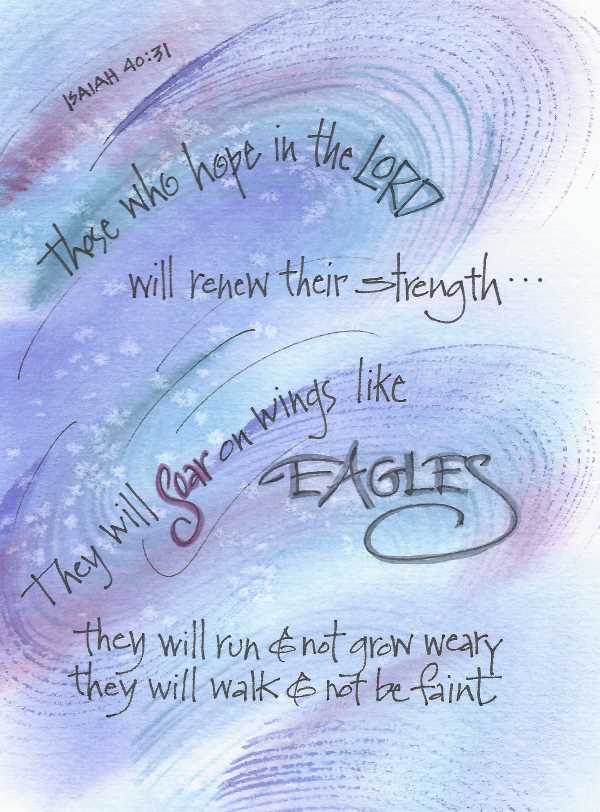 ISAIAH 40:31
those who hope in the LORD
will renew their strength...
They will soar on wings like
EAGLES
they will run & not grow weary
they will walk & not be faint